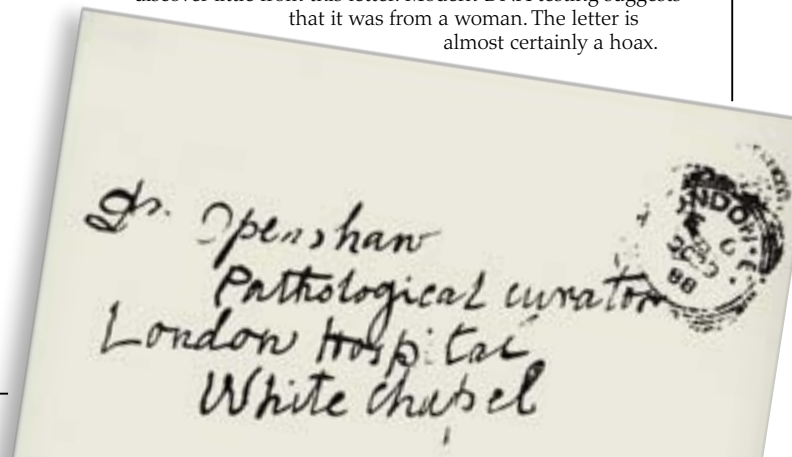 that it was from a woman. The letter is
almost certainly a hoax.
Dr. Openshaw
Pathological curator
London Hospital
White chapel
LONDON. E.
OC29
88